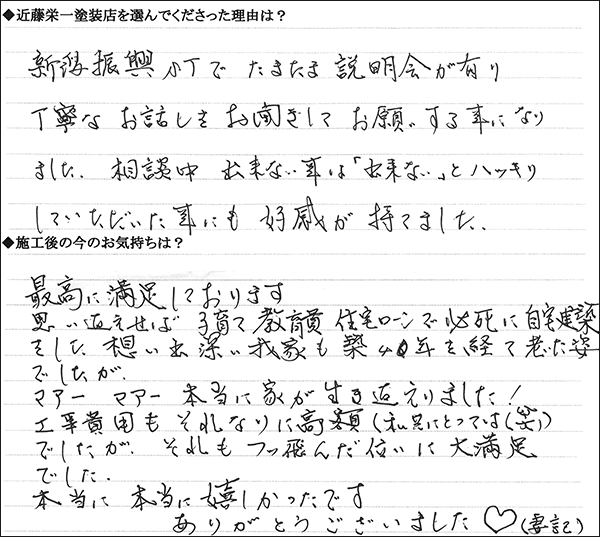 ◆近藤栄一塗装店を選んでくださった理由は？
新潟振興でたまたま説明会が有り
丁寧なお話しをお聞きしてお願いする事になり
ました。相談中 出来ない事は「出来ない」とハッキリ
していただいた事にも好感が持てました。
◆施工後の今のお気持ちは？
最高に満足しております
思い返えせば 子育て 教育費 住宅ローンで必死に自宅建築
をした想い出深い我家も築40年を経て老いた姿
でしたが、
マアー マアー 本当に家が生き返えりました！
工事費用もそれなりに高額(私共にとっては(笑))
でしたが、それもフッ飛んだ位いに大満足
でした。
本当に本当に嬉しかったです
ありがとうございました♡(妻記)